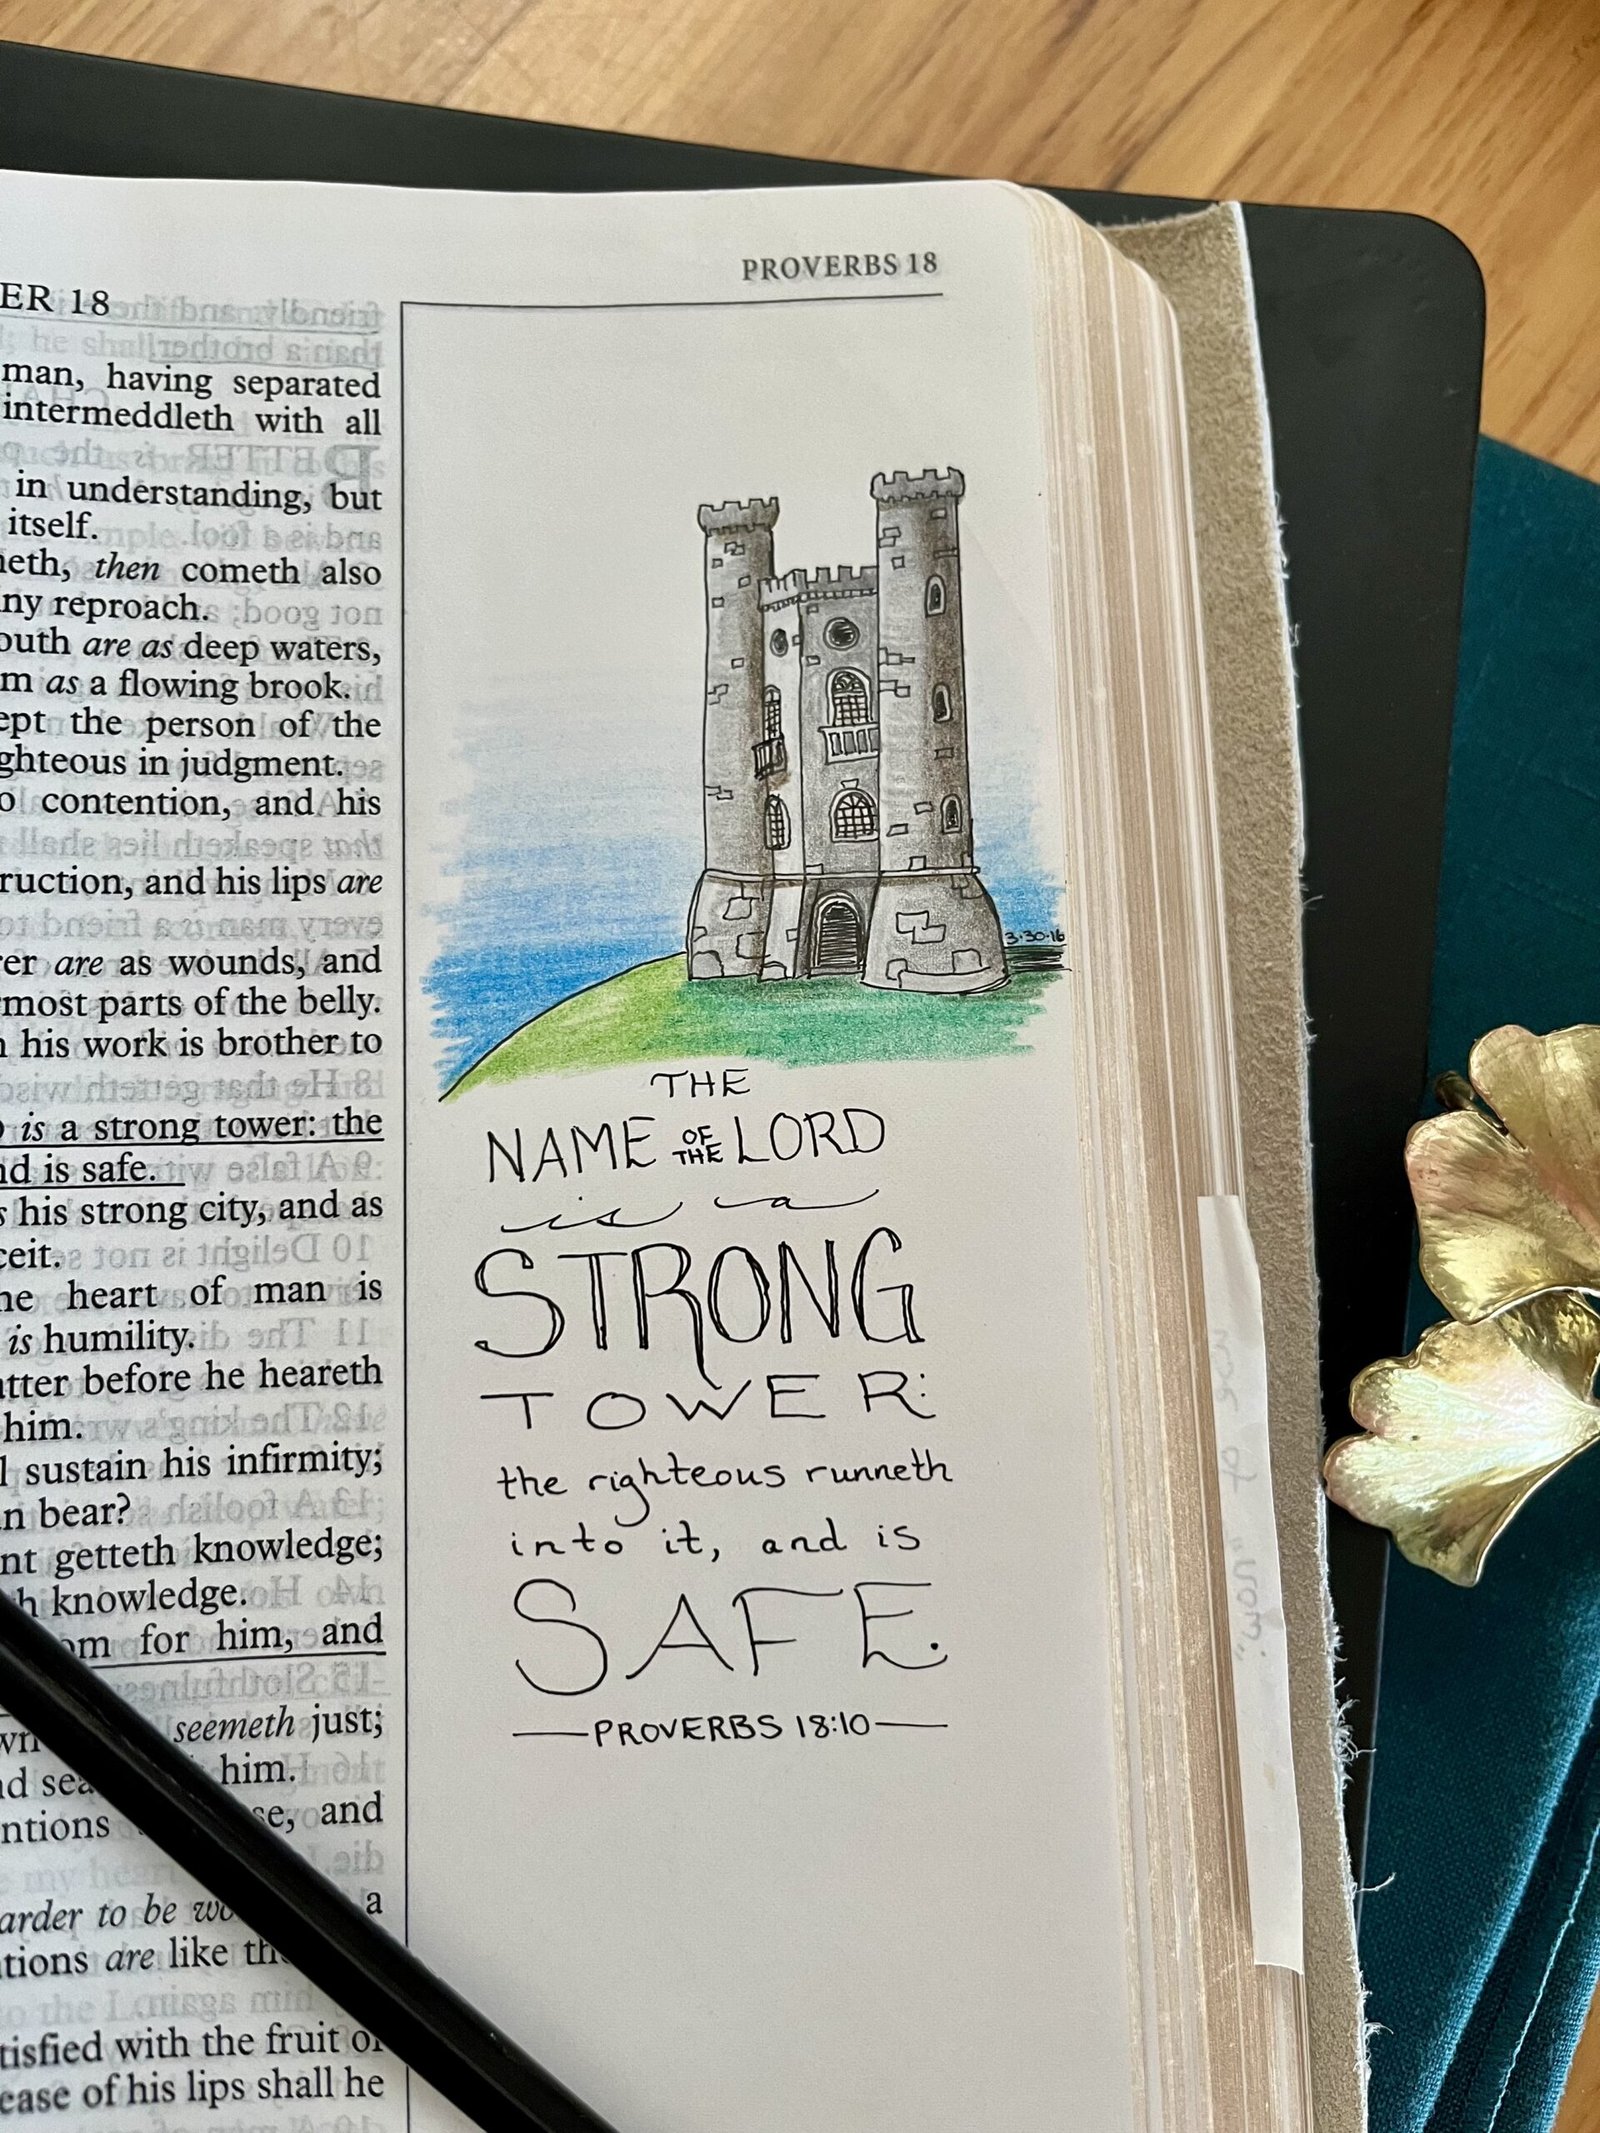 PROVERBS 18
ER 18
man, having separated
intermeddleth with all
in understanding, but
itself.
then cometh also
ny reproach.
outh are as deep waters,
m as a flowing brook.
ept the person of the
ghteous in judgment.
o contention, and his
ruction, and his lips are
er are as wounds, and
most parts of the belly.
his work is brother to
is a strong tower: the
nd is safe.
s his strong city, and as
ceit.
he heart of man is
is humility.
tter before he heareth
him.
l sustain his infirmity;
n bear?
nt getteth knowledge;
h knowledge.
om for him, and
wn seemeth just;
him.
ntions se, and
arder to be a
tions are like
tisfied with the fruit of
ease of his lips shall he
3·30·16
THE
NAME OF THE LORD
is a
STRONG
TOWER:
the righteous runneth
into it, and is
SAFE.
PROVERBS 18:10